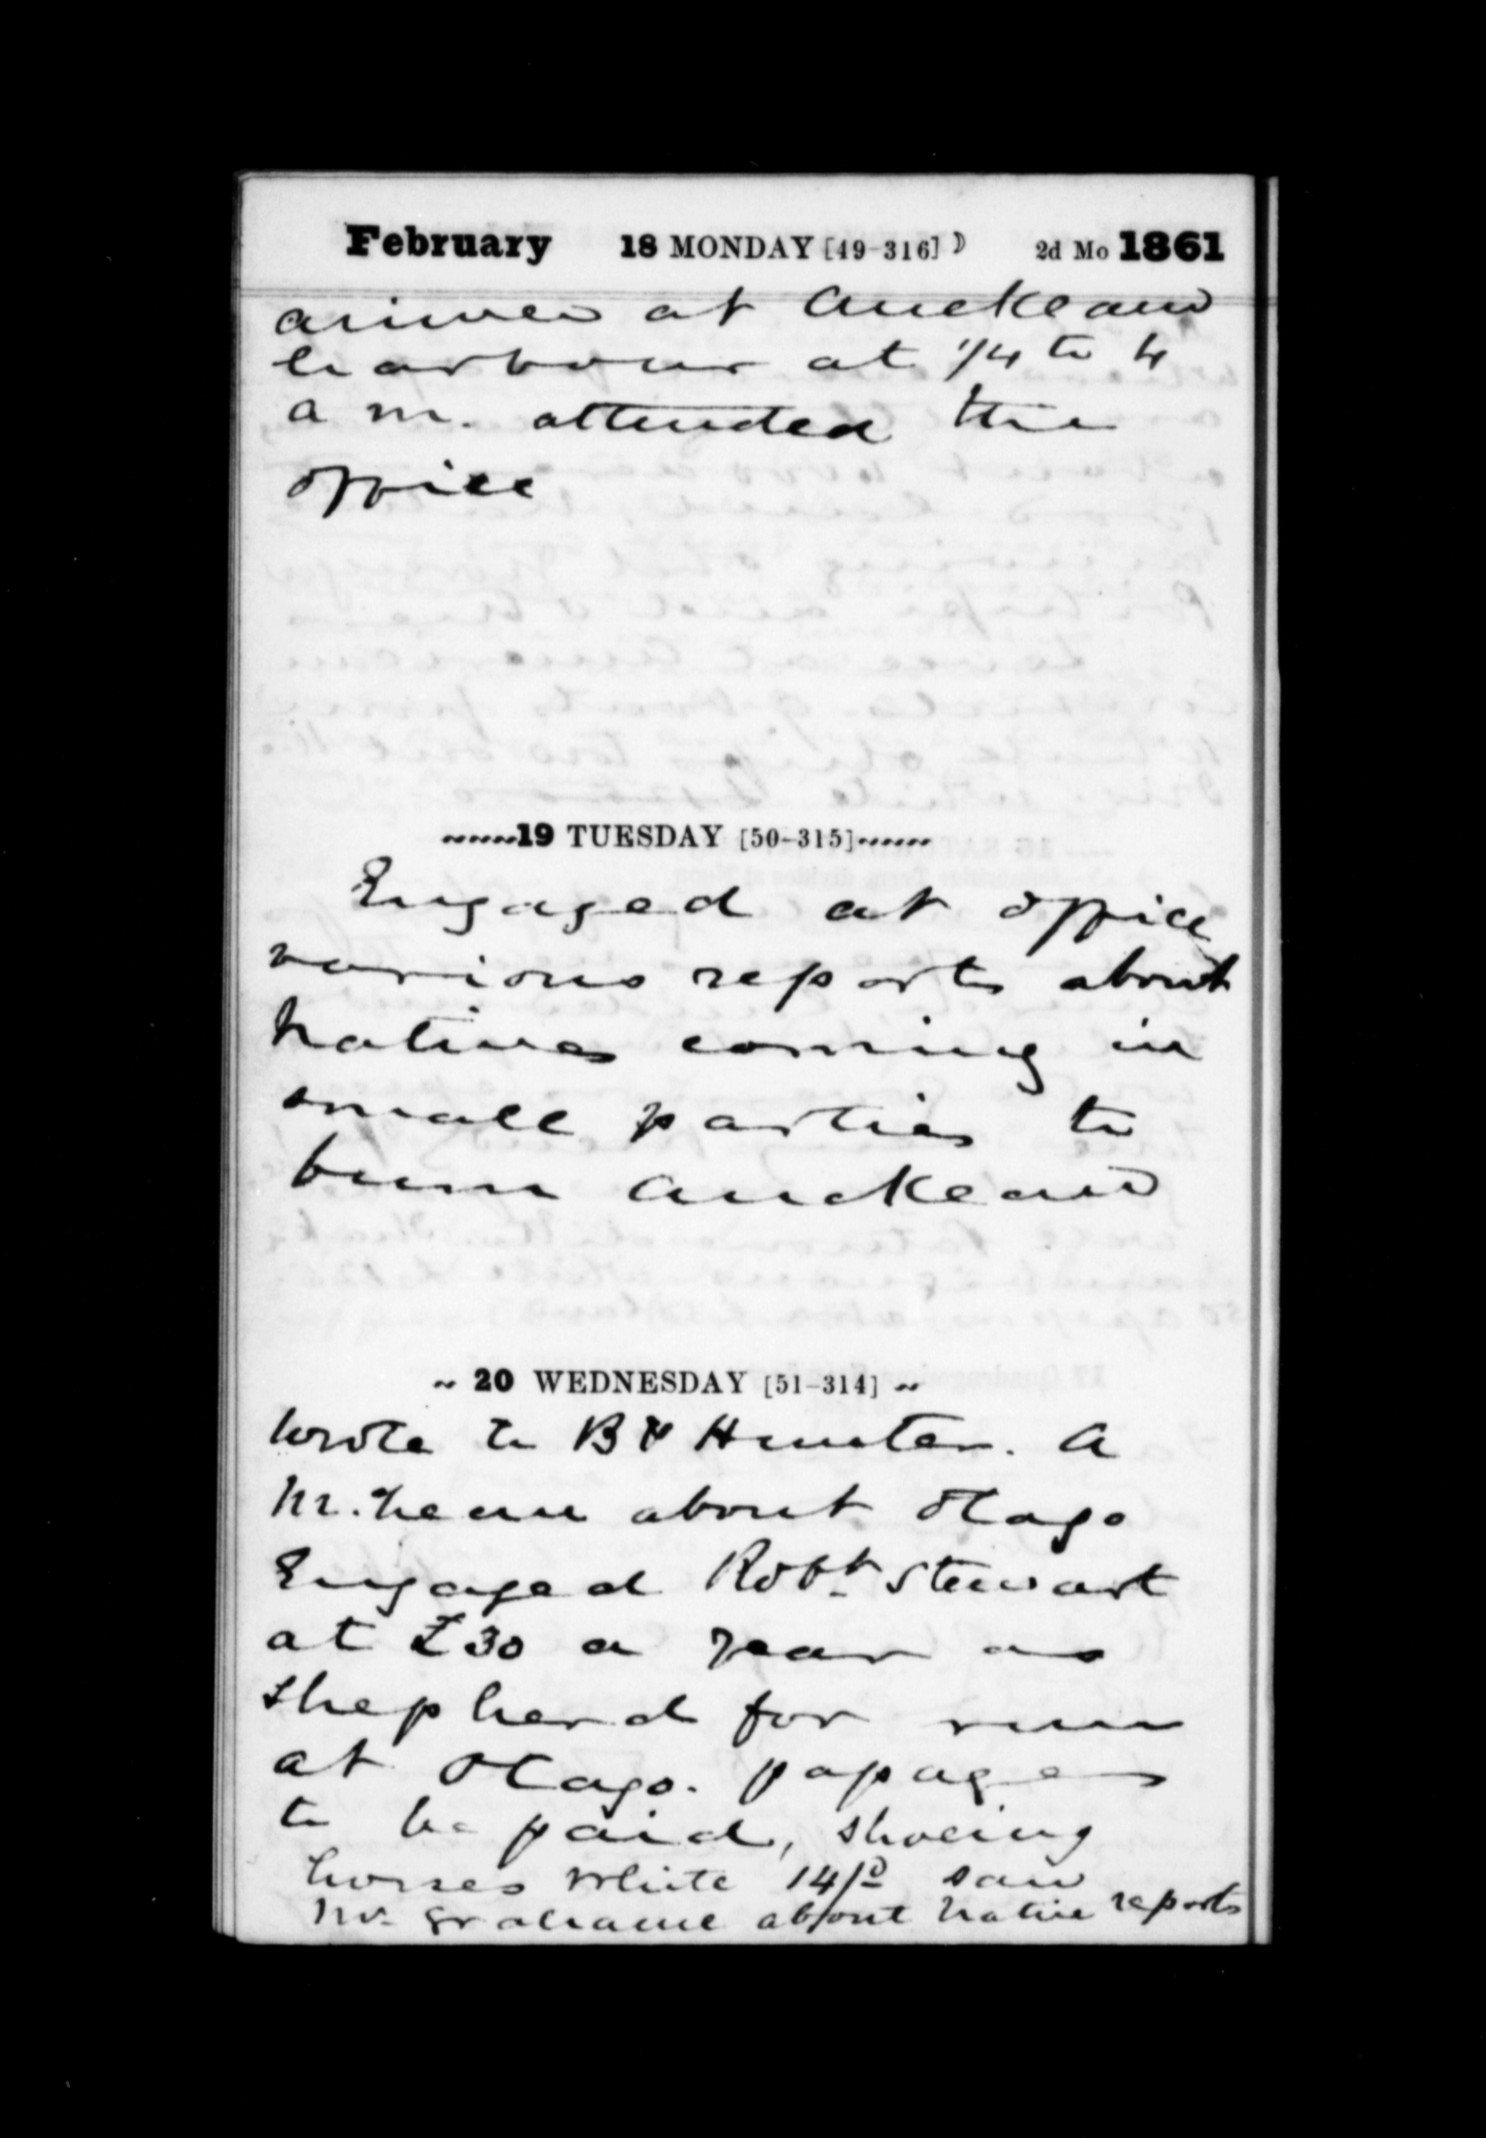 February 18 MONDAY [49-316] ☽ 2d Mo 1861
arrived at Auckland
harbour at 1/4 to 4
a m. attended the
office
19 TUESDAY [50-315]
Engaged at office
various reports about
natives coming in
small parties to
burn Auckland
20 WEDNESDAY [51-314]
wrote to Hunter. A
McLean about Otago
Engaged Robt Stewart
at £30 a year as
shepherd for run
at Otago. passage
to be paid, shoeing
horses White 14/- saw
Mr. Grahame about native reports